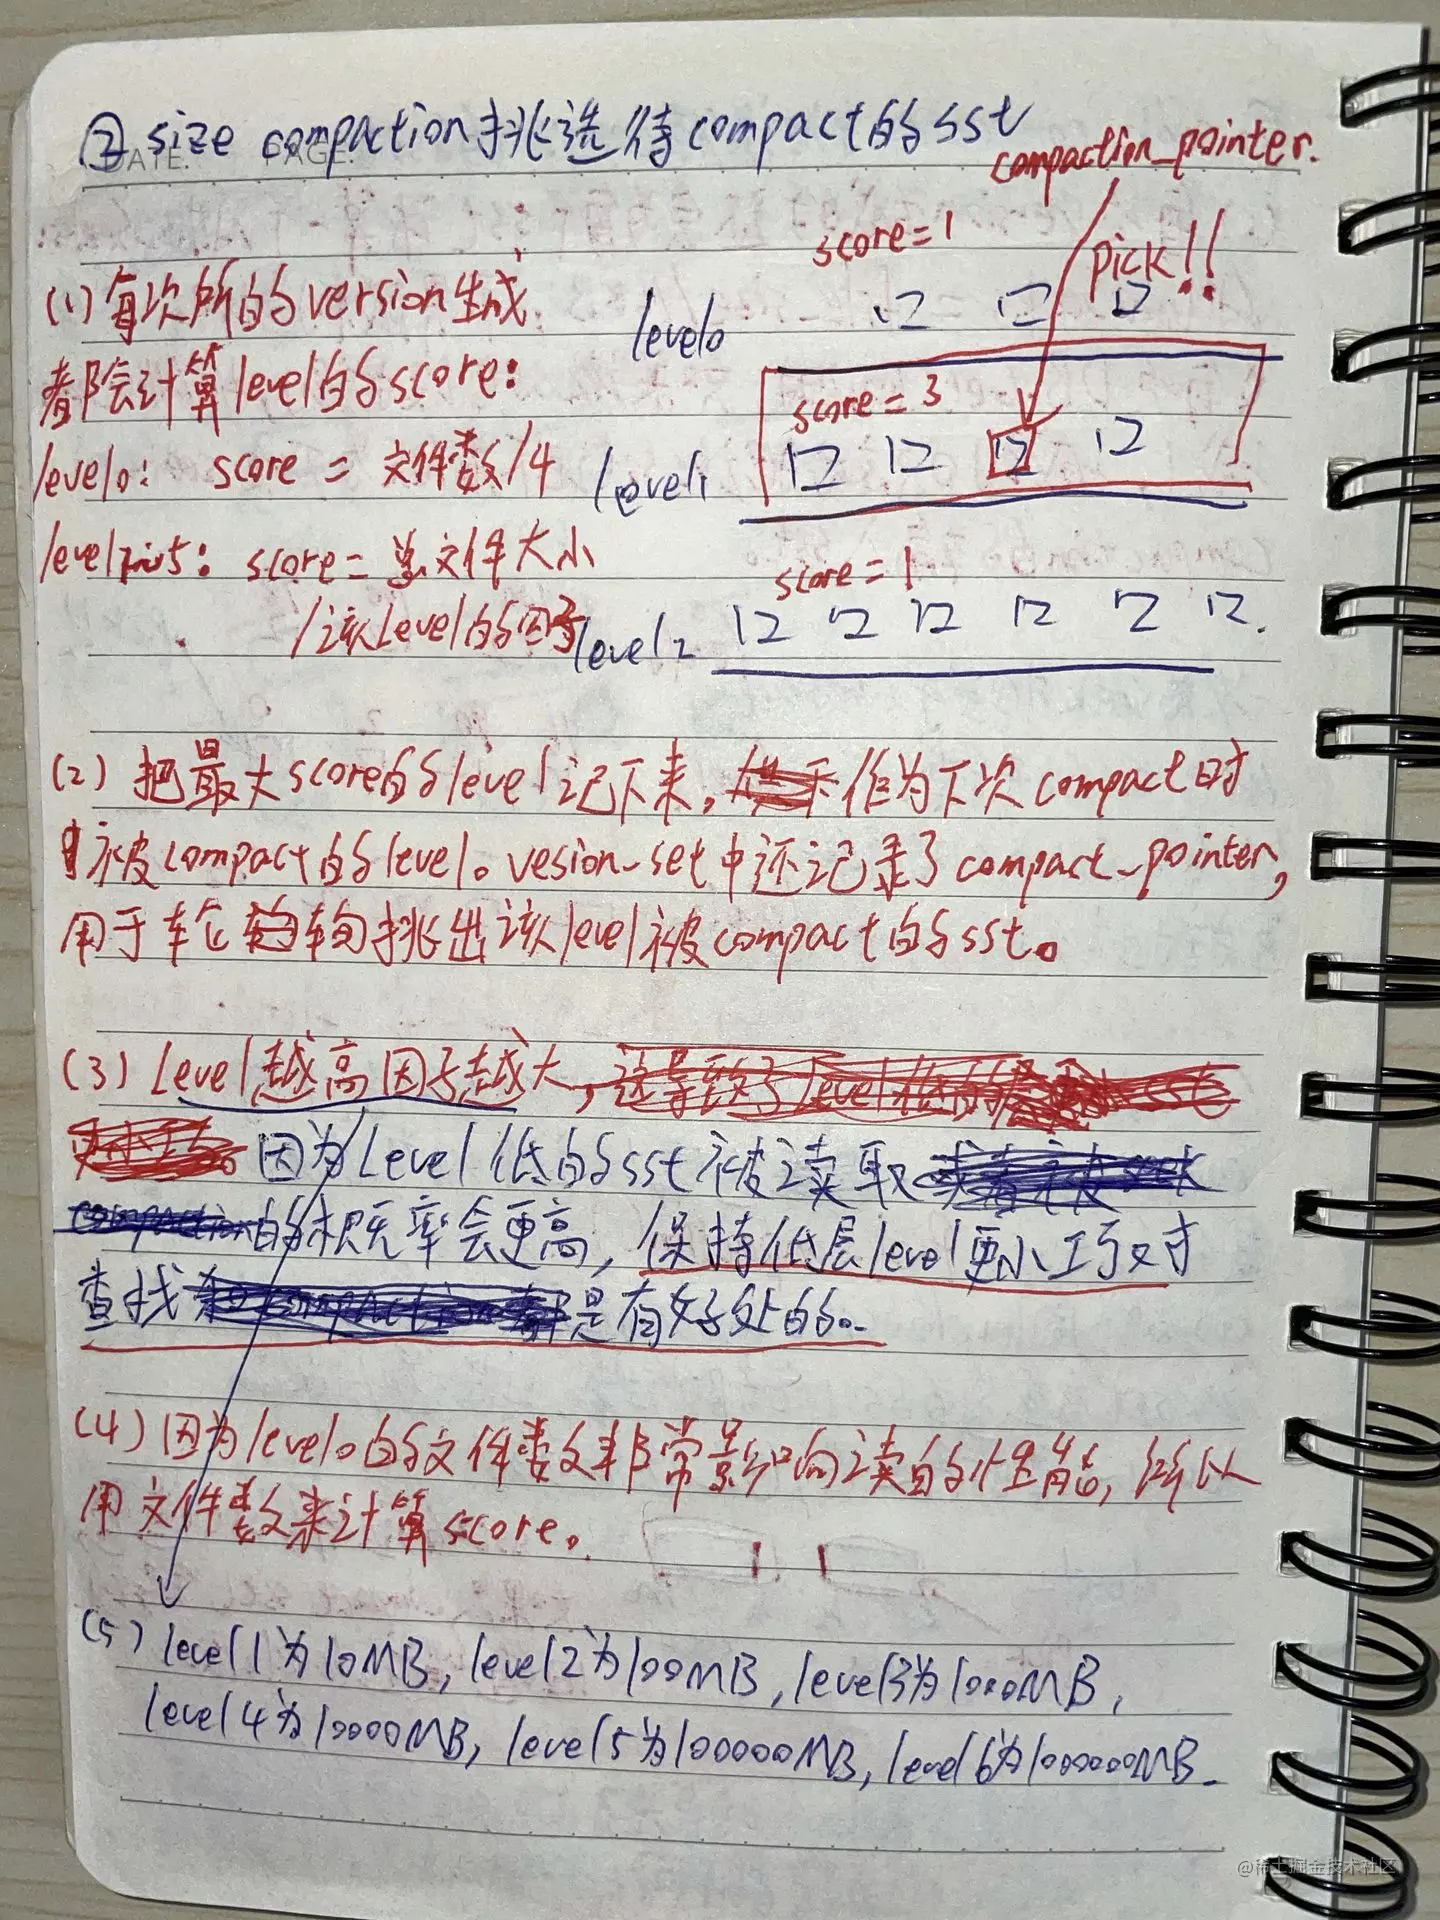 ② size compaction挑选待compact的sst
DATE. PAGE.
compaction_pointer.
pick!!
score=1
level0
score=3
level1
score=1
level2
(1)每次所的version生成
都会计算level的score:
level0: score = 文件数/4
score=总文件大小
/该Level的因子
(2) 把最大score的level记下来,作为下次compact时
被compact的level。vesion_set中还记录了compact_pointer,
用于轮询挑出该level被compact的sst。
(3) Level越高因子越大,这导致了level低的
因为Level低的sst被读取
compaction的概率会更高,保持低层level更小巧对
查找是有好处的。
(4)因为level0的文件数非常影响读的性能,所以
用文件数来计算score。
(5) level1为10MB, level2为100MB, level3为1000MB,
level4为10000MB, level5为100000MB, level6为1000000MB.
@稀土掘金技术社区